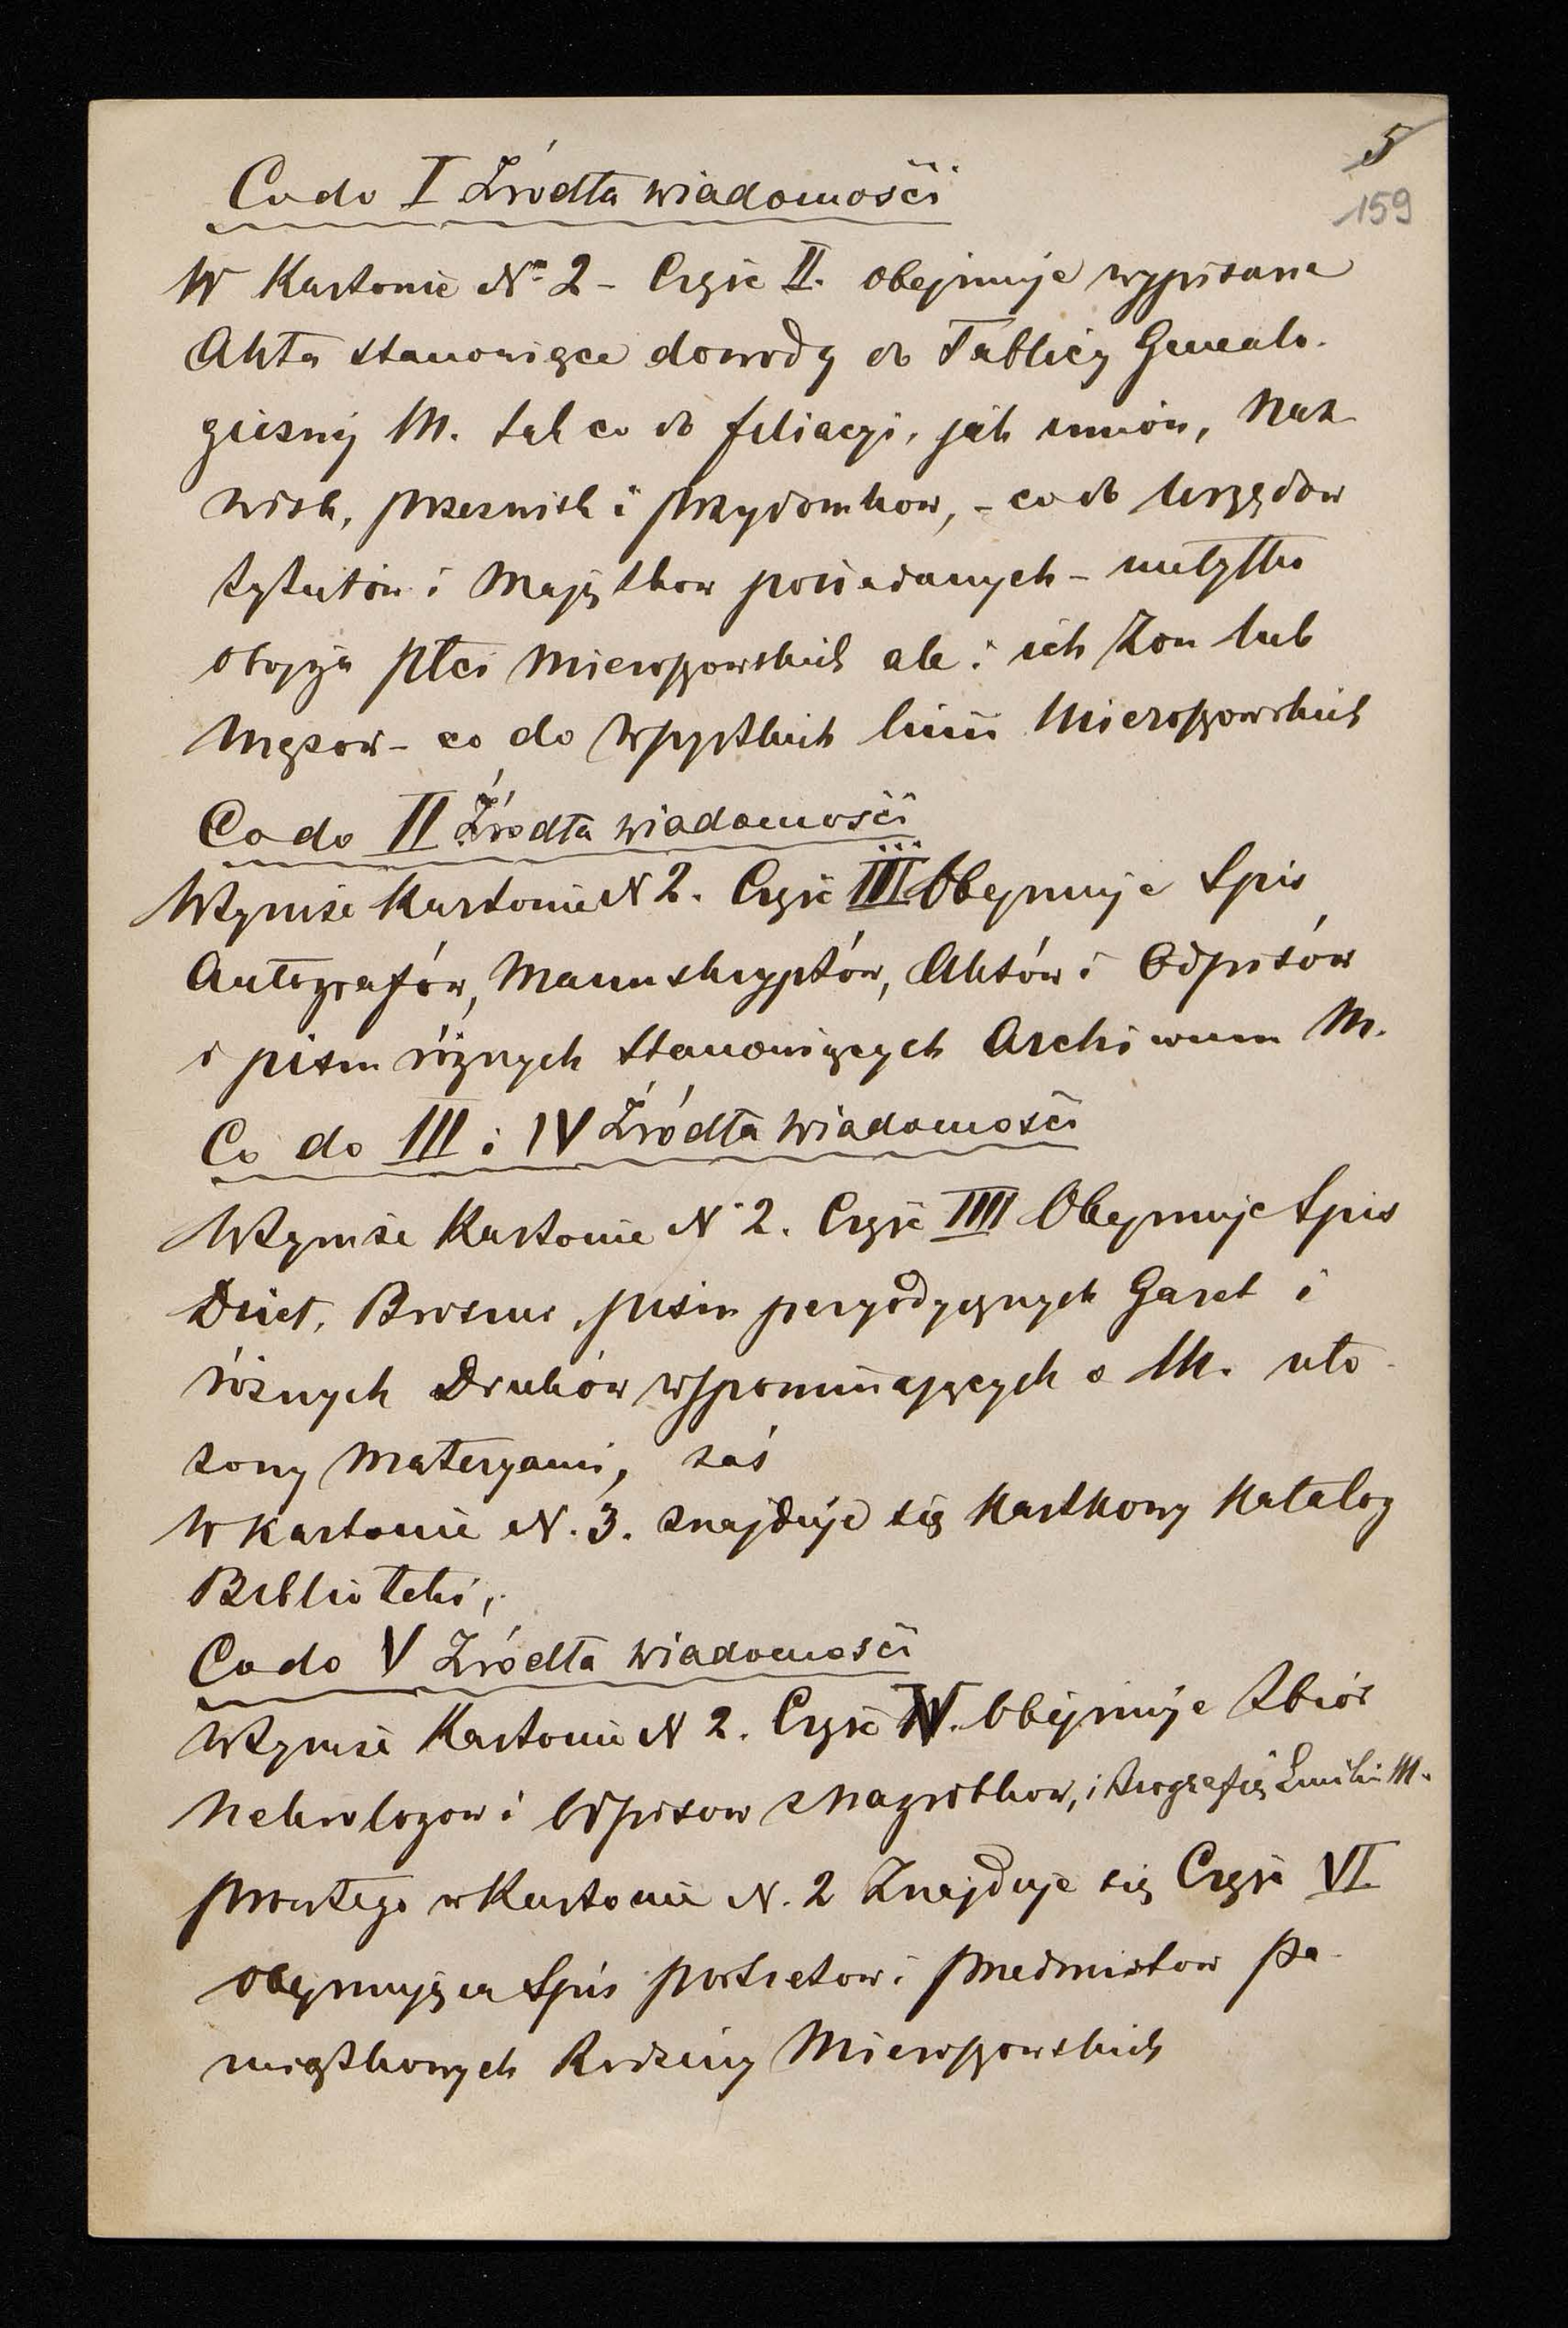 5
159
Co do I Źródła wiadomości
W Kartonie No 2 - Część II. obejmuje wypisane
Akta stanowiące dowody do Tablicy Genealo-
gicznej M. tak co do filiacyi, jak imion, Naz-
wisk, przezwisk i przydomkow, - co do Urzędow
tytułów i Majątkow posiadanych - nietylko
obojga płci Mieroszowskich ale i ich Żon lub
Mężow - co do wszystkich linii Mieroszowskich
Co do II Źródła wiadomości
W tymże Kartonie N 2. Część III Obejmuje Spis
Autografów, Manuskryptów, Aktów i Odpisów
i pism różnych Stanowiących Archiwum M.
Co do III i IV Źródła wiadomości
W tymże Kartonie N 2. Część IIII Obejmuje Spis
Dzieł, Broszur, pism peryodycznych Gazet i
różnych Druków wspominających o M. uło-
żony Materyami, zaś
w Kartonie N. 3. znajduje się Kartkowy Katalog
Biblioteki,
Co do V Źródła wiadomości
W tymże Kartonie N 2. Część V. Obejmuje Zbiór
Nekrologow i Odpisow z Nagrobkow, i Biografię Emilii M.
prócz tego w Kartonie N. 2 Znajduje się Część VI
obejmująca Spis portretow i przedmiotow pa-
miątkowych Rodziny Mieroszowskich